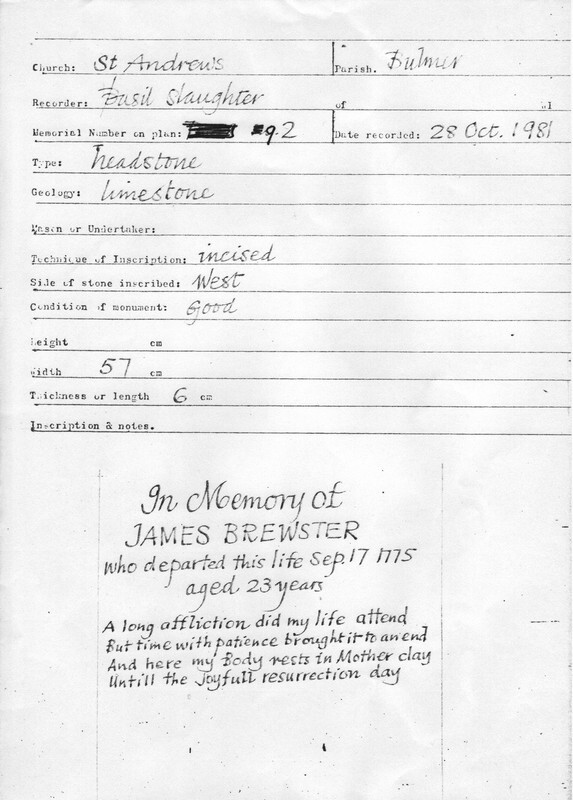 Church: St Andrews Parish. Bulmer
Recorder: Basil Slaughter of
Memorial Number on plan: 92 Date recorded: 28 Oct. 1981
Type: headstone
Geology: limestone
Mason or Undertaker:
Technique of Inscription: incised
Side of stone inscribed: West
Condition of monument: Good
Height cm
Width 57 cm
Thickness or length 6 cm
Inscription & notes.
In Memory of
JAMES BREWSTER
who departed this life Sep. 17 1775
aged 23 years
A long affliction did my life attend
But time with patience brought it to an end
And here my Body rests in Mother clay
Untill the Joyfull resurrection day